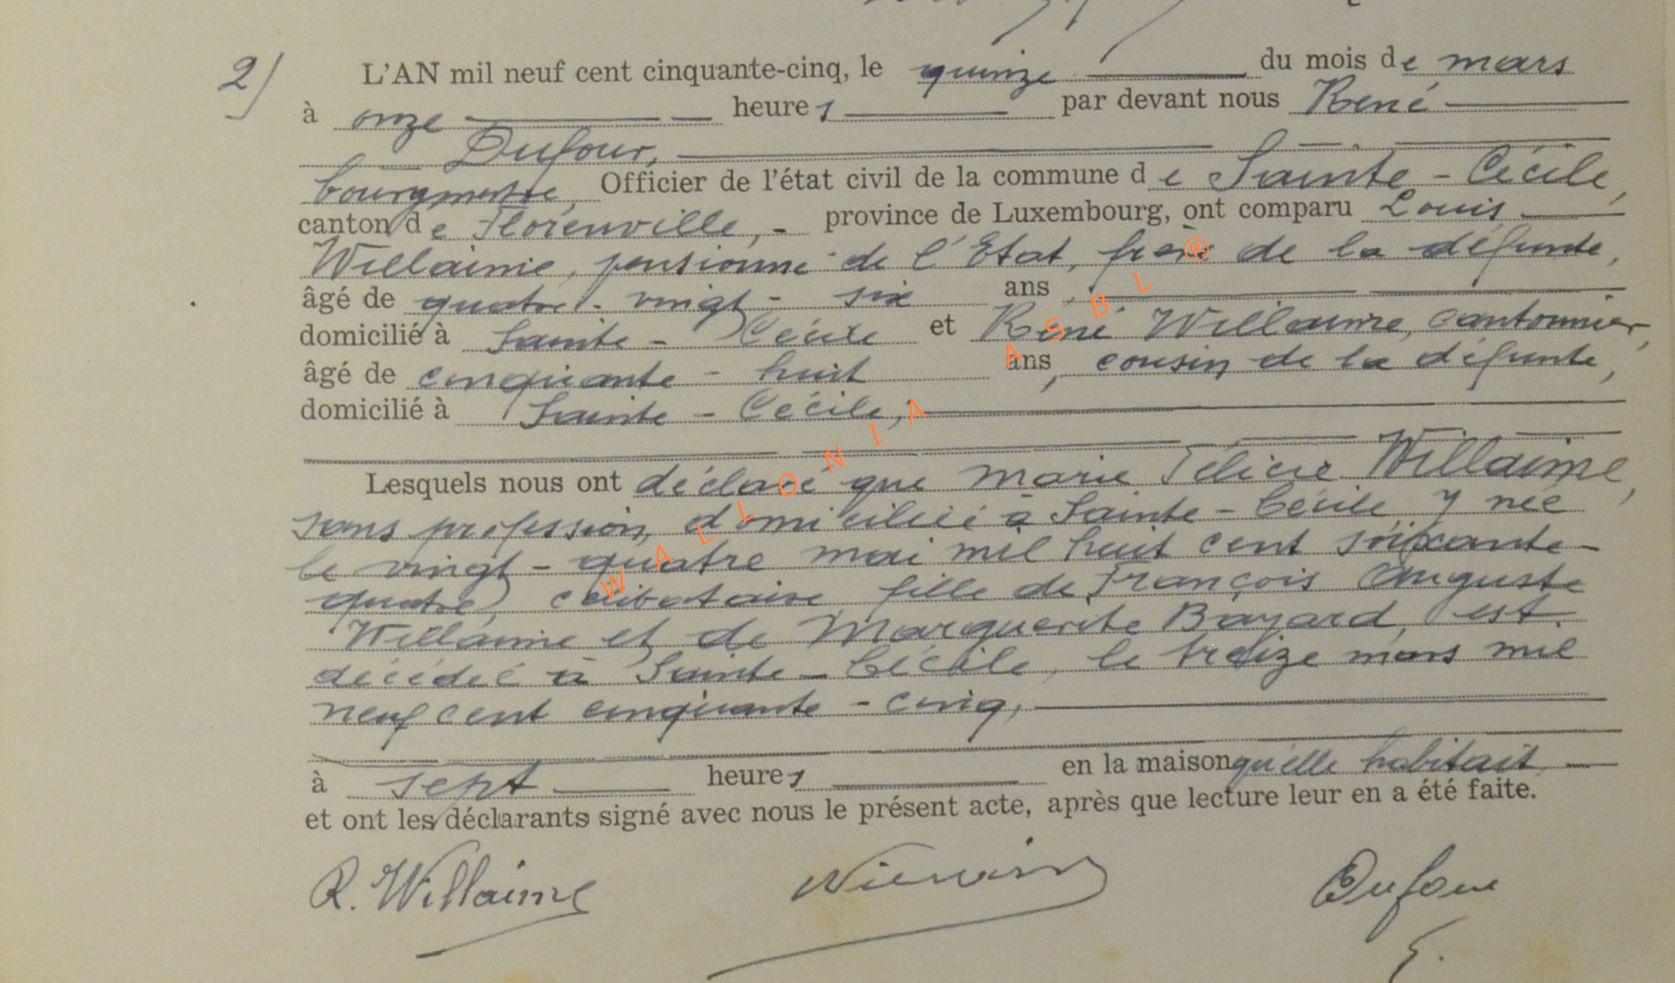 2) L'AN mil neuf cent cinquante-cinq, le quinze du mois de mars
à onze heures par devant nous René
Dufour,
bourgmestre, Officier de l'état civil de la commune de Sainte-Cécile,
canton de Florenville, province de Luxembourg, ont comparu Louis
Willaime, pensionné de l'Etat, frère de la défunte,
âgé de quatre-vingt-six ans,
domicilié à Sainte-Cécile et René Willaime, cantonnier,
âgé de cinquante-huit ans, cousin de la défunte,
domicilié à Sainte-Cécile,
Lesquels nous ont déclaré que Marie Félicie Willaime,
sans profession, domiciliée à Sainte-Cécile y née
le vingt-quatre mai mil huit cent soixante-
quatre, célibataire, fille de François Auguste
Willaime et de Marguerite Bayard, est
décédée à Sainte-Cécile, le treize mars mil
neuf cent cinquante-cinq,
à sept heures en la maison qu'elle habitait,
et ont les déclarants signé avec nous le présent acte, après que lecture leur en a été faite.
R. Willaime Dufour
WALLONIA ASBL ®